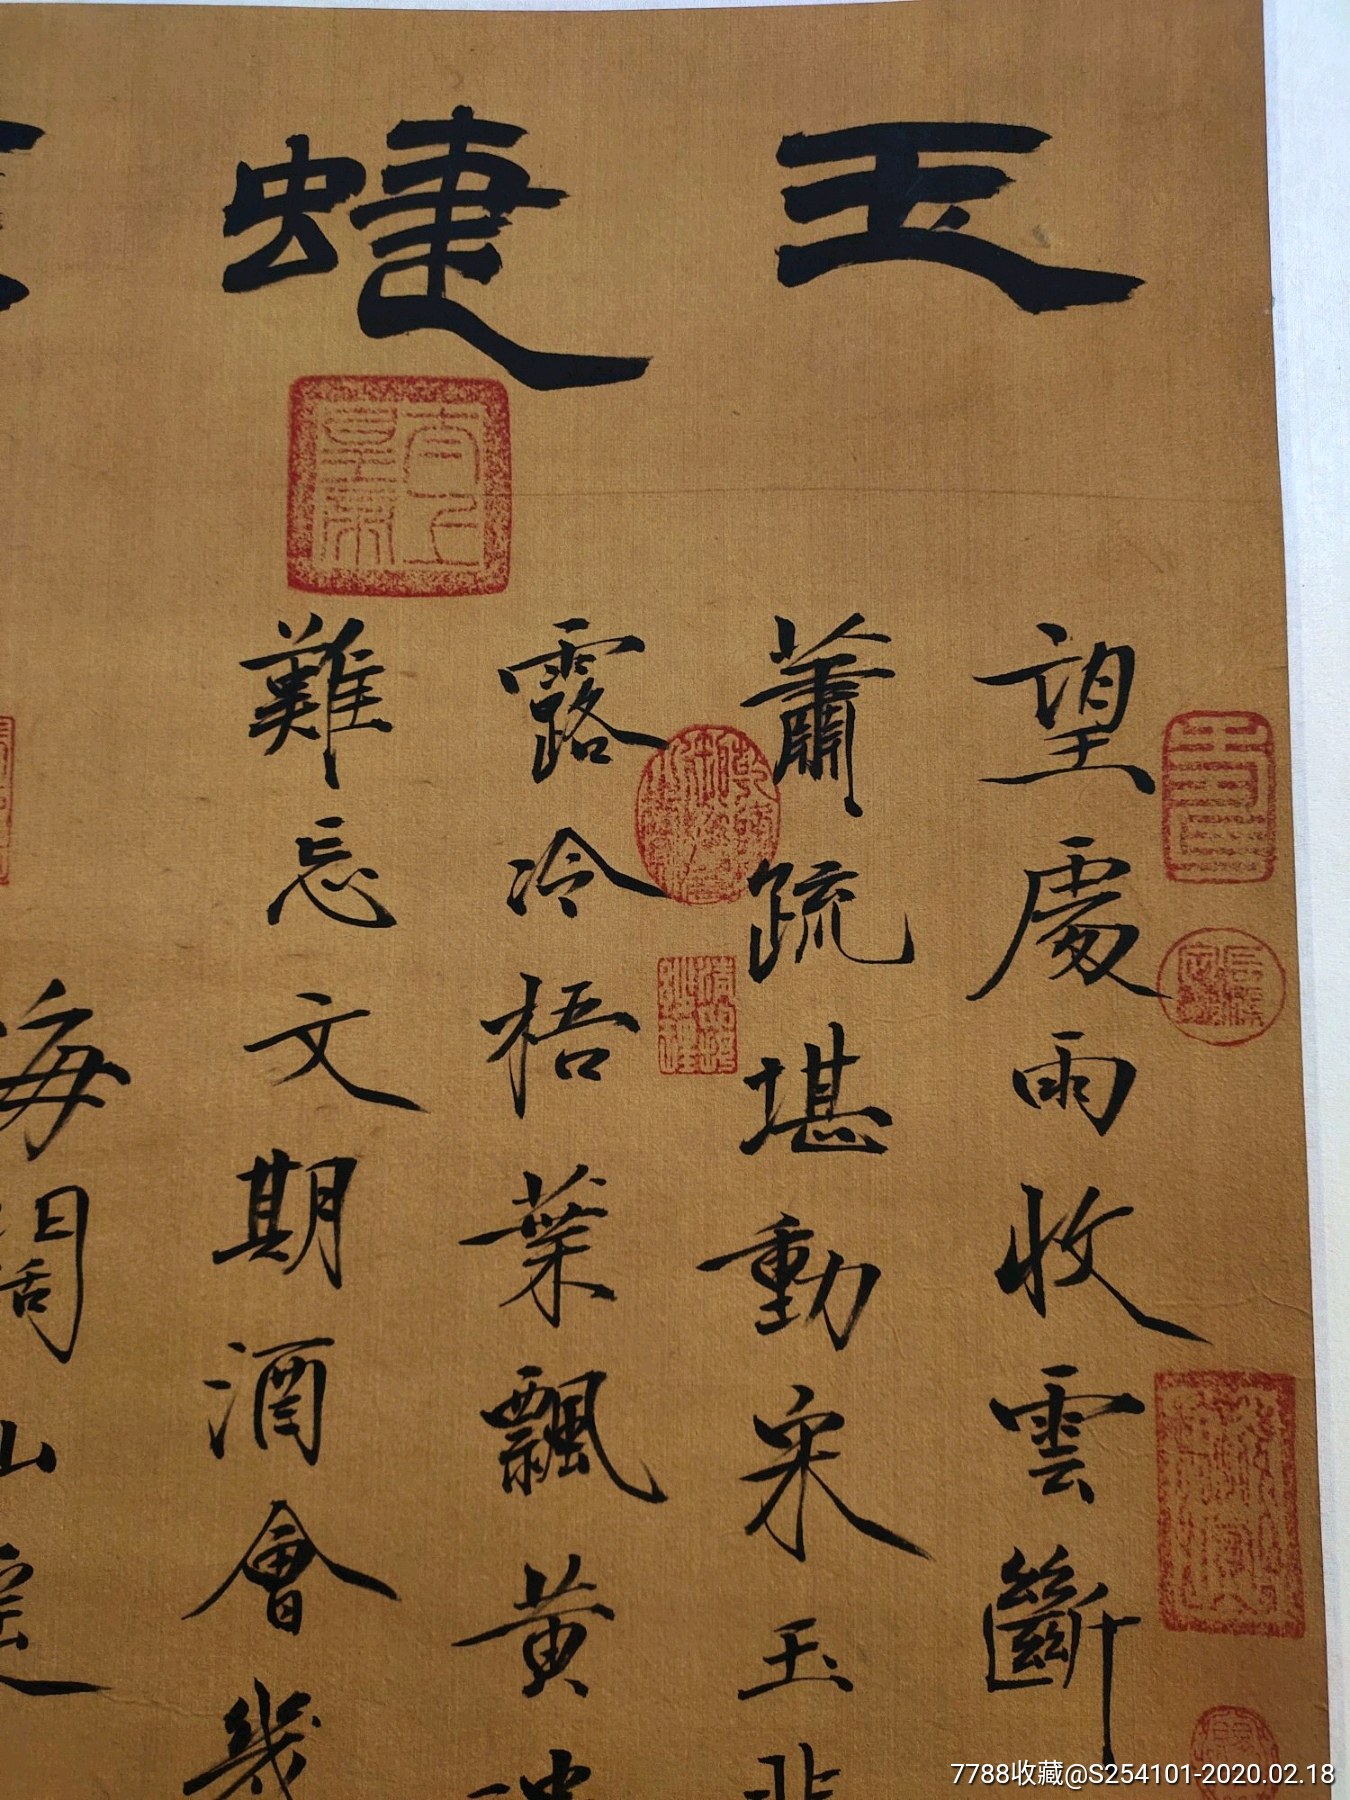 玉蝴
望處雨收雲斷
蕭疏堪動宋玉悲
露冷梧葉飄黃
難忘文期酒會幾
海闊山遥
太上皇帝
壽
7788收藏@S254101-2020.02.18